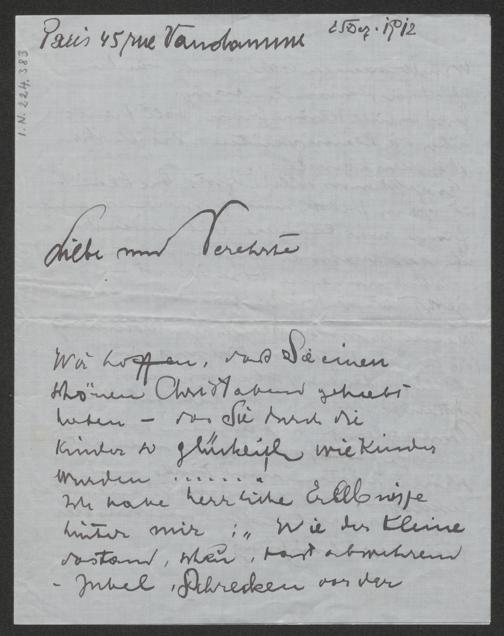 Paris 45, rue Vandamme 25 Dez. 1912
I.N. 224.383
Liebe und Verehrte
Wir hoffen, dass Sie einen
schönen Christabend gehabt
haben – das Sie durch die
Kinder so glücklich wie Kinder
wurden .......
Ich habe herrliche Erlebnisse
hinter mir: „Wie der Kleine
dastand, scheu, fast abwehrend
- Jubel, Schrecken vor der